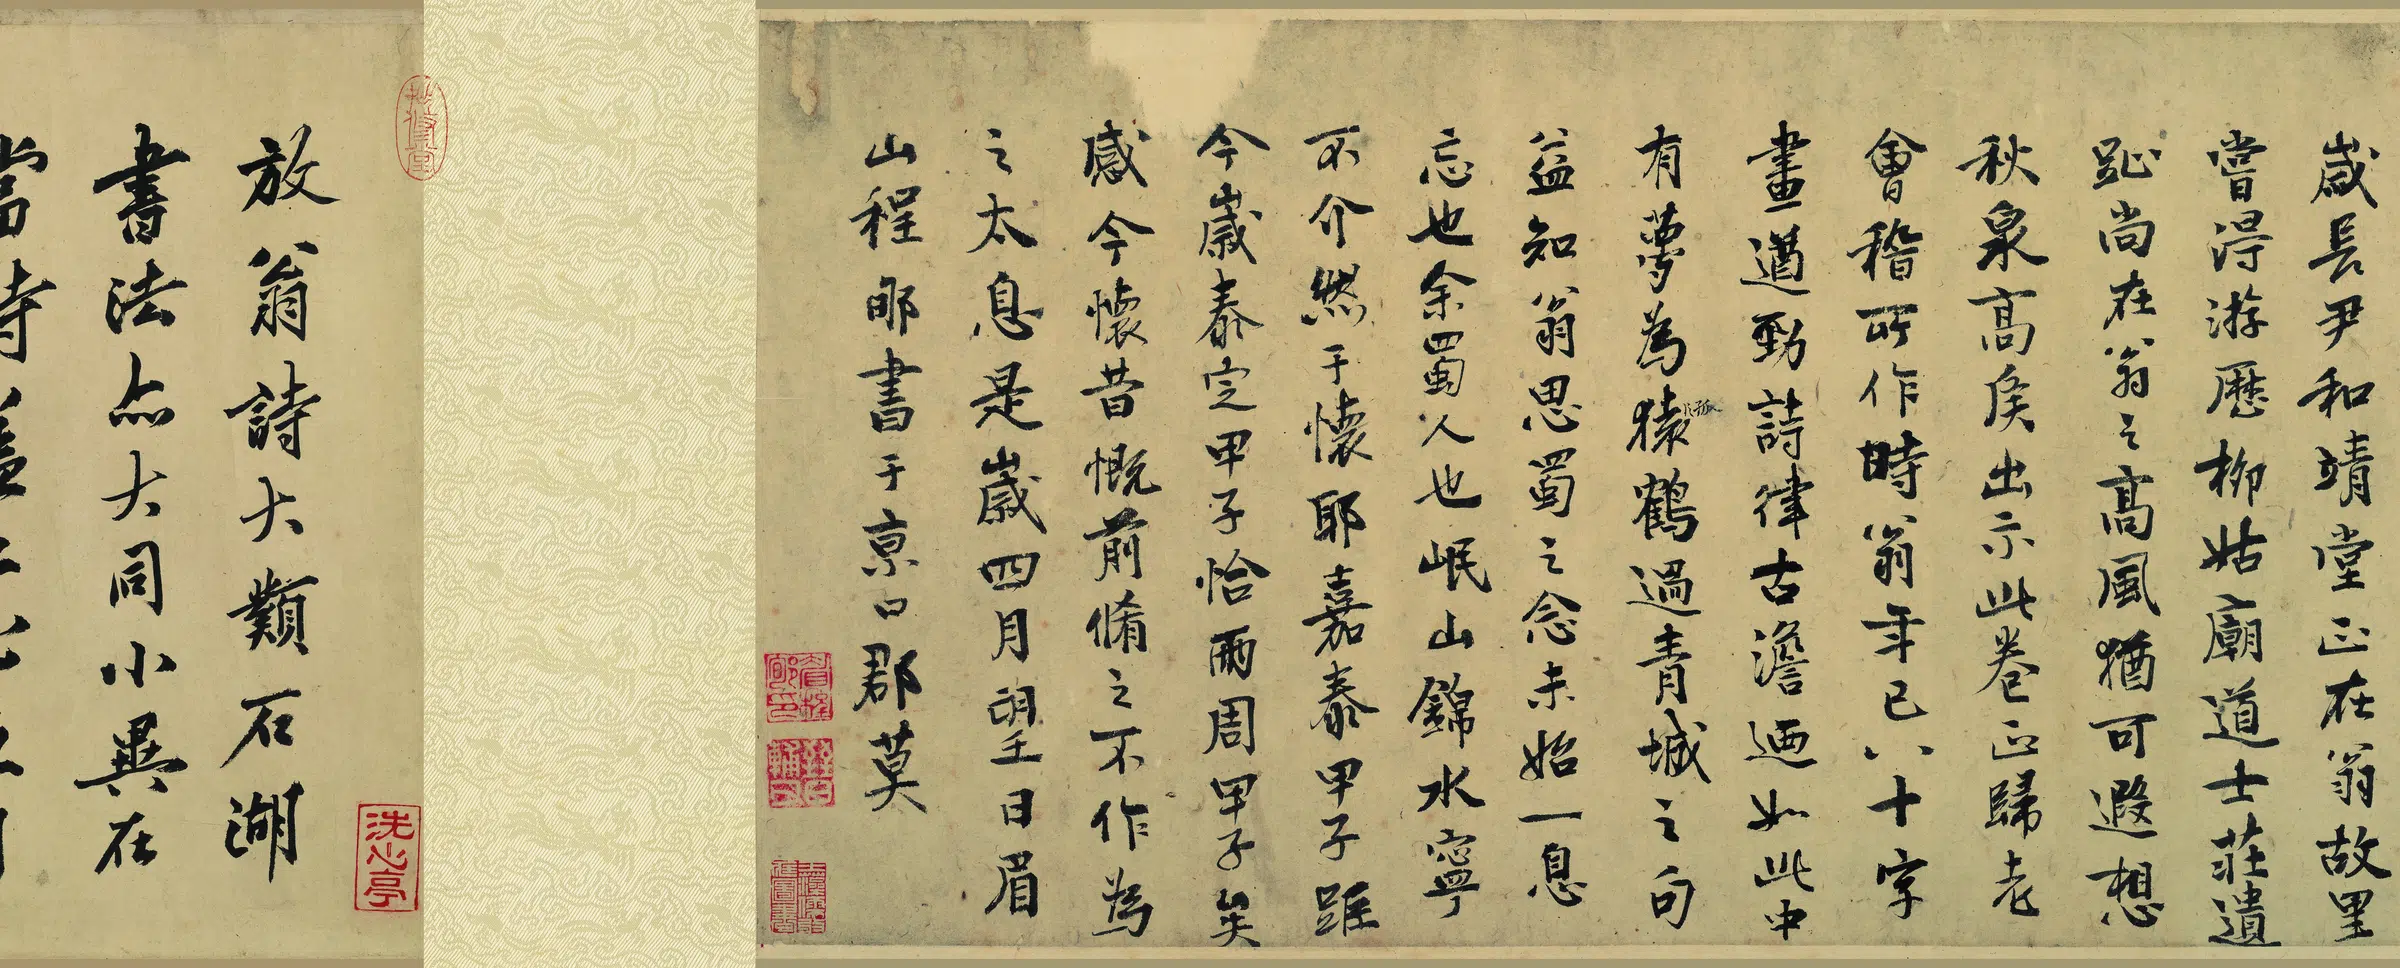 歲長尹和靖堂正在翁故里
嘗得游歷柳姑廟道士莊遺
趾尚在翁之高風猶可遐想
秋泉高矦出示此卷正歸老
會稽所作時翁年已八十字
畫遒勁詩律古澹廼如此中
有夢為猿鶴過青城之句
益知翁思蜀之念未始一息
忘也余蜀人也岷山錦水寧
不介然于懷耶嘉泰甲子距
今歲泰定甲子恰兩周甲子矣
感今懷昔慨前脩之不作為
之太息是歲四月望日眉
山程郇書于京口郡莫
放翁詩大類石湖
書法亦大同小異在
洗心亭